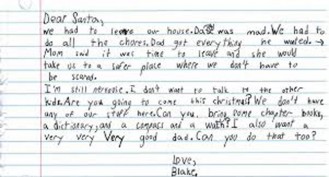 Dear Santa,
we had to leave our house. Dad was mad. We had to
do all the chores. Dad got everything he wanted.
Mom said it was time to leave and she would
take us to a safer place where we don't have to
be scared.
I'm still nervous. I don't want to talk to the other
kids. Are you going to come this christmas? We don't have
any of our stuff here. Can you bring some chapter books,
a dictionary, and a compass and a watch? I also want a
very very very good dad. Can you do that too?
Love,
Blake.